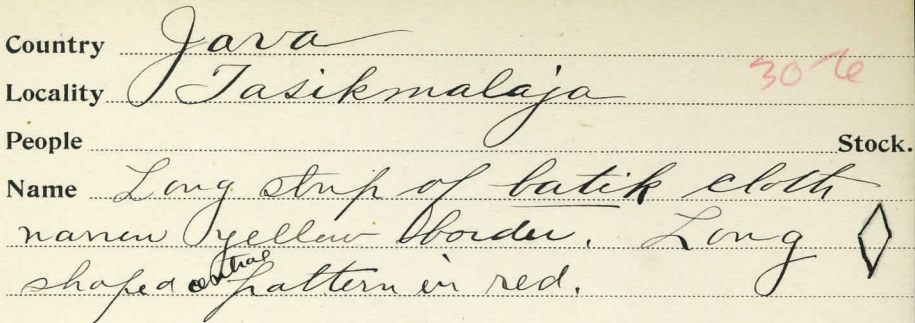 Country Java
Locality Tasikmalaja
People Stock.
Name Long strip of batik cloth
narrow yellow border. Long
shaped central pattern in red.